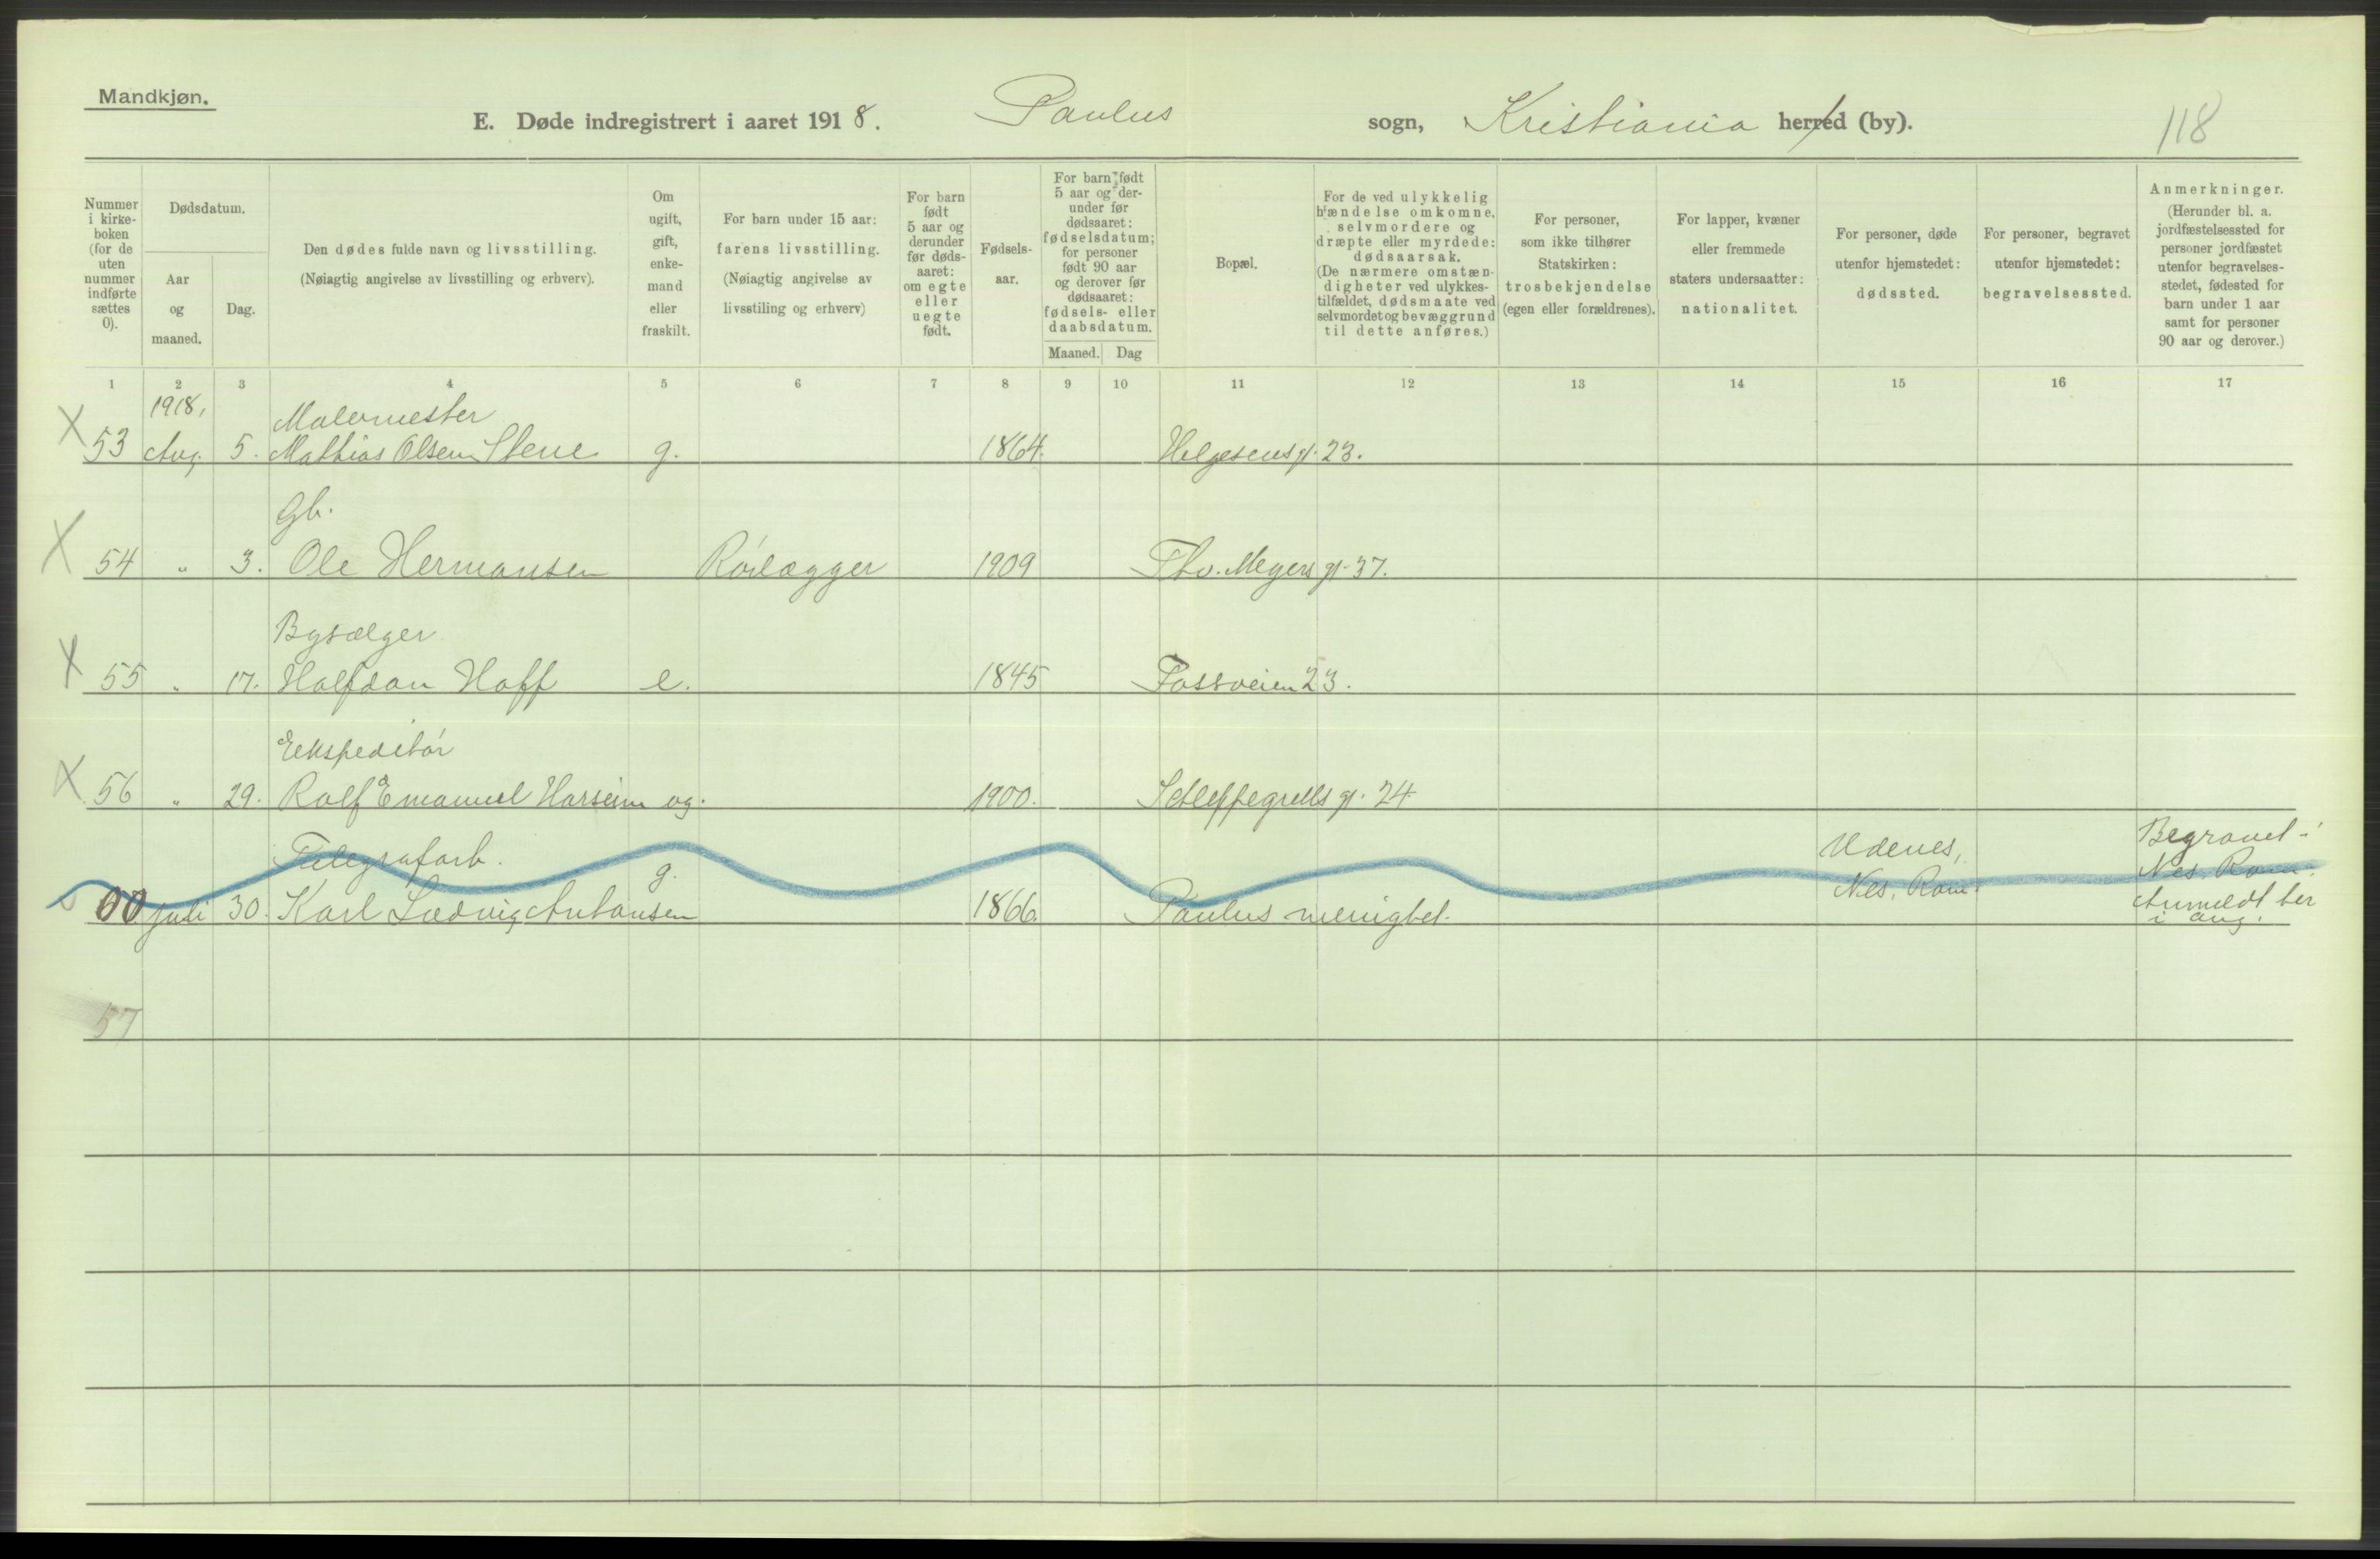 Mandkjøn.
E. Døde indregistrert i aaret 1918. Paulus sogn, Kristiania herred (by). 118
Nummer i kirkeboken (for de uten nummer indførte sættes 0).
Dødsdatum.
Aar og maaned.
Dag.
Den dødes fulde navn og livsstilling.
(Nøiagtig angivelse av livsstilling og erhverv).
Om ugift, gift, enkemand eller fraskilt.
For barn under 15 aar: farens livsstilling.
(Nøiagtig angivelse av livsstiling og erhverv)
For barn født 5 aar og derunder før dødsaaret: om egte eller uegte født.
Fødselsaar.
For barn født 5 aar og derunder før dødsaaret: fødselsdatum; for personer født 90 aar og derover før dødsaaret: fødsels- eller daabsdatum.
Maaned. Dag
Bopæl.
For de ved ulykkelig hændelse omkomne, selvmordere og dræpte eller myrdede: dødsaarsak.
(De nærmere omstændigheter ved ulykkestilfældet, dødsmaate ved selvmordet og bevæggrund til dette anføres.)
For personer, som ikke tilhører Statskirken: trosbekjendelse (egen eller forældrenes).
For lapper, kvæner eller fremmede staters undersaatter: nationalitet.
For personer, døde utenfor hjemstedet: dødssted.
For personer, begravet utenfor hjemstedet: begravelsessted.
Anmerkninger.
(Herunder bl. a. jordfæstelsessted for personer jordfæstet utenfor begravelsesstedet, fødested for barn under 1 aar samt for personer 90 aar og derover.)
1 2 3 4 5 6 7 8 9 10 11 12 13 14 15 16 17
1918,
Malermester
X 53 Aug. 5. Mathias Olsen Stene g. 1864. Helgesensgt. 23.
Gb.
X 54 " 3. Ole Hermansen Rørlægger 1909 Thv. Meyers gt. 37.
Bysælger
X 55 " 17. Halfdan Hoff e. 1845 Fossveien 23.
Ekspeditør
X 56 " 29. Rolf Emanuel Harseim ug. 1900. Schleppegrells gt. 24
Telegrafarb. Udenes, Begravet i
g. Nes, Rom. Nes, Rom.
00 Juli 30. Karl Ludvig Antonsen 1866. Paulus menighet. Anmeldt her
i aug.
57